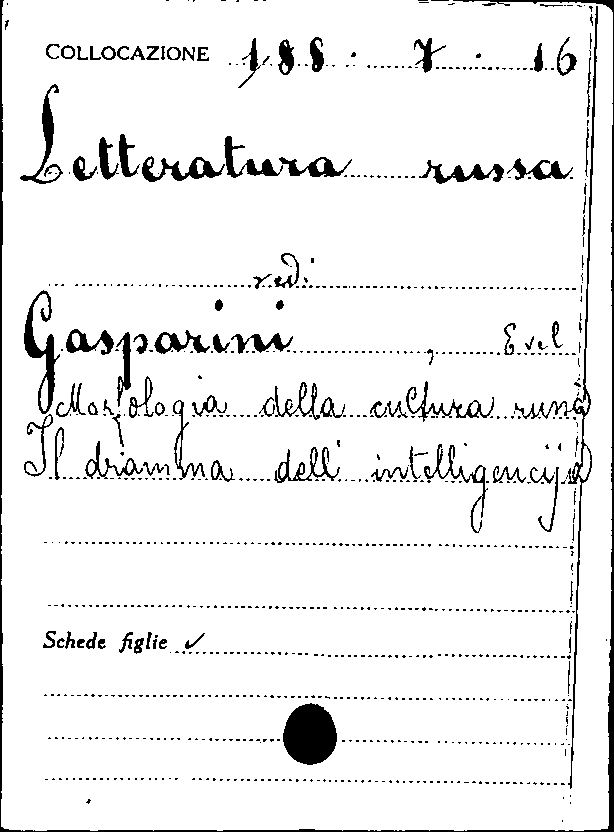 COLLOCAZIONE 188 . 7 . 16
Letteratura russa
vedi
Gasparini , Evel
Morfologia della cultura russa
Il dramma dell'intelligencija
Schede figlie ✓